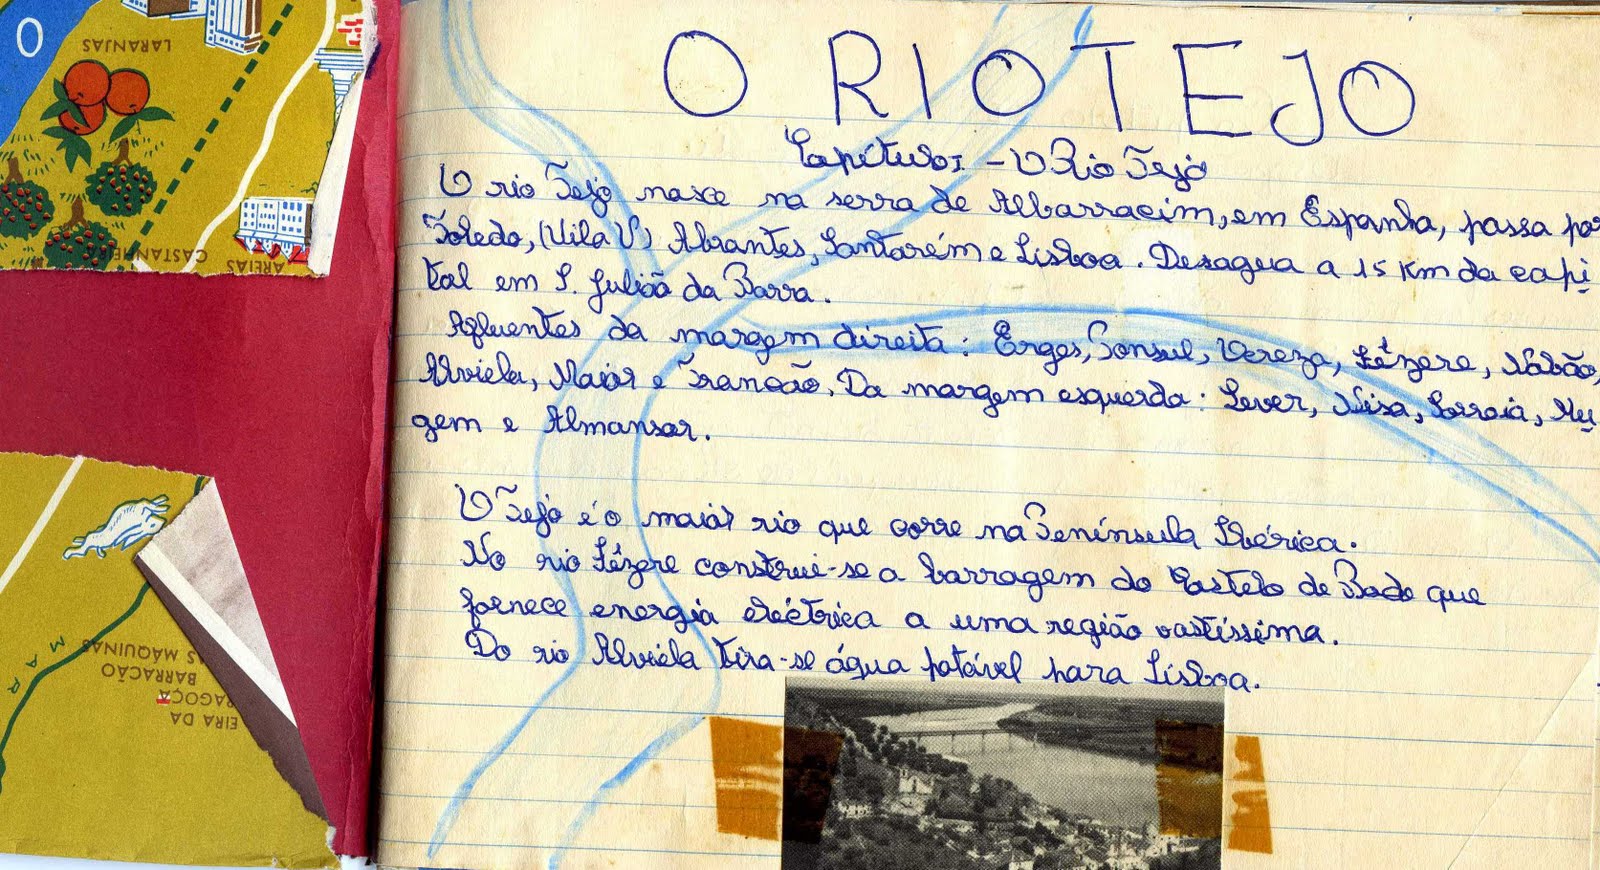 O
LARANJAS
CASTANHEI
AREIAS
MAR
EIRA DA
RAGOÇA
BARRACÃO
AS MÁQUINAS
O RIO TEJO
Capítulo I - O Rio Tejo
O rio Tejo nasce na serra de Albarracim, em Espanha, passa por
Toledo, (Vila V) Abrantes, Santarém e Lisboa. Desagua a 15 Km da capi
tal em S. Julião da Barra.
Afluentes da margem direita: Erges, Ponsul, Vereza, Zêzere, Nabão,
Alviela, Maior e Trancão. Da margem esquerda: Sever, Nisa, Sorraia, Mu
gem e Almansor.
O Tejo é o maior rio que corre na Península Ibérica.
No rio Zêzere construi-se a barragem do Castelo de Bode que
fornece energia eléctrica a uma região vastíssima.
Do rio Alviela tira-se água potável para Lisboa.